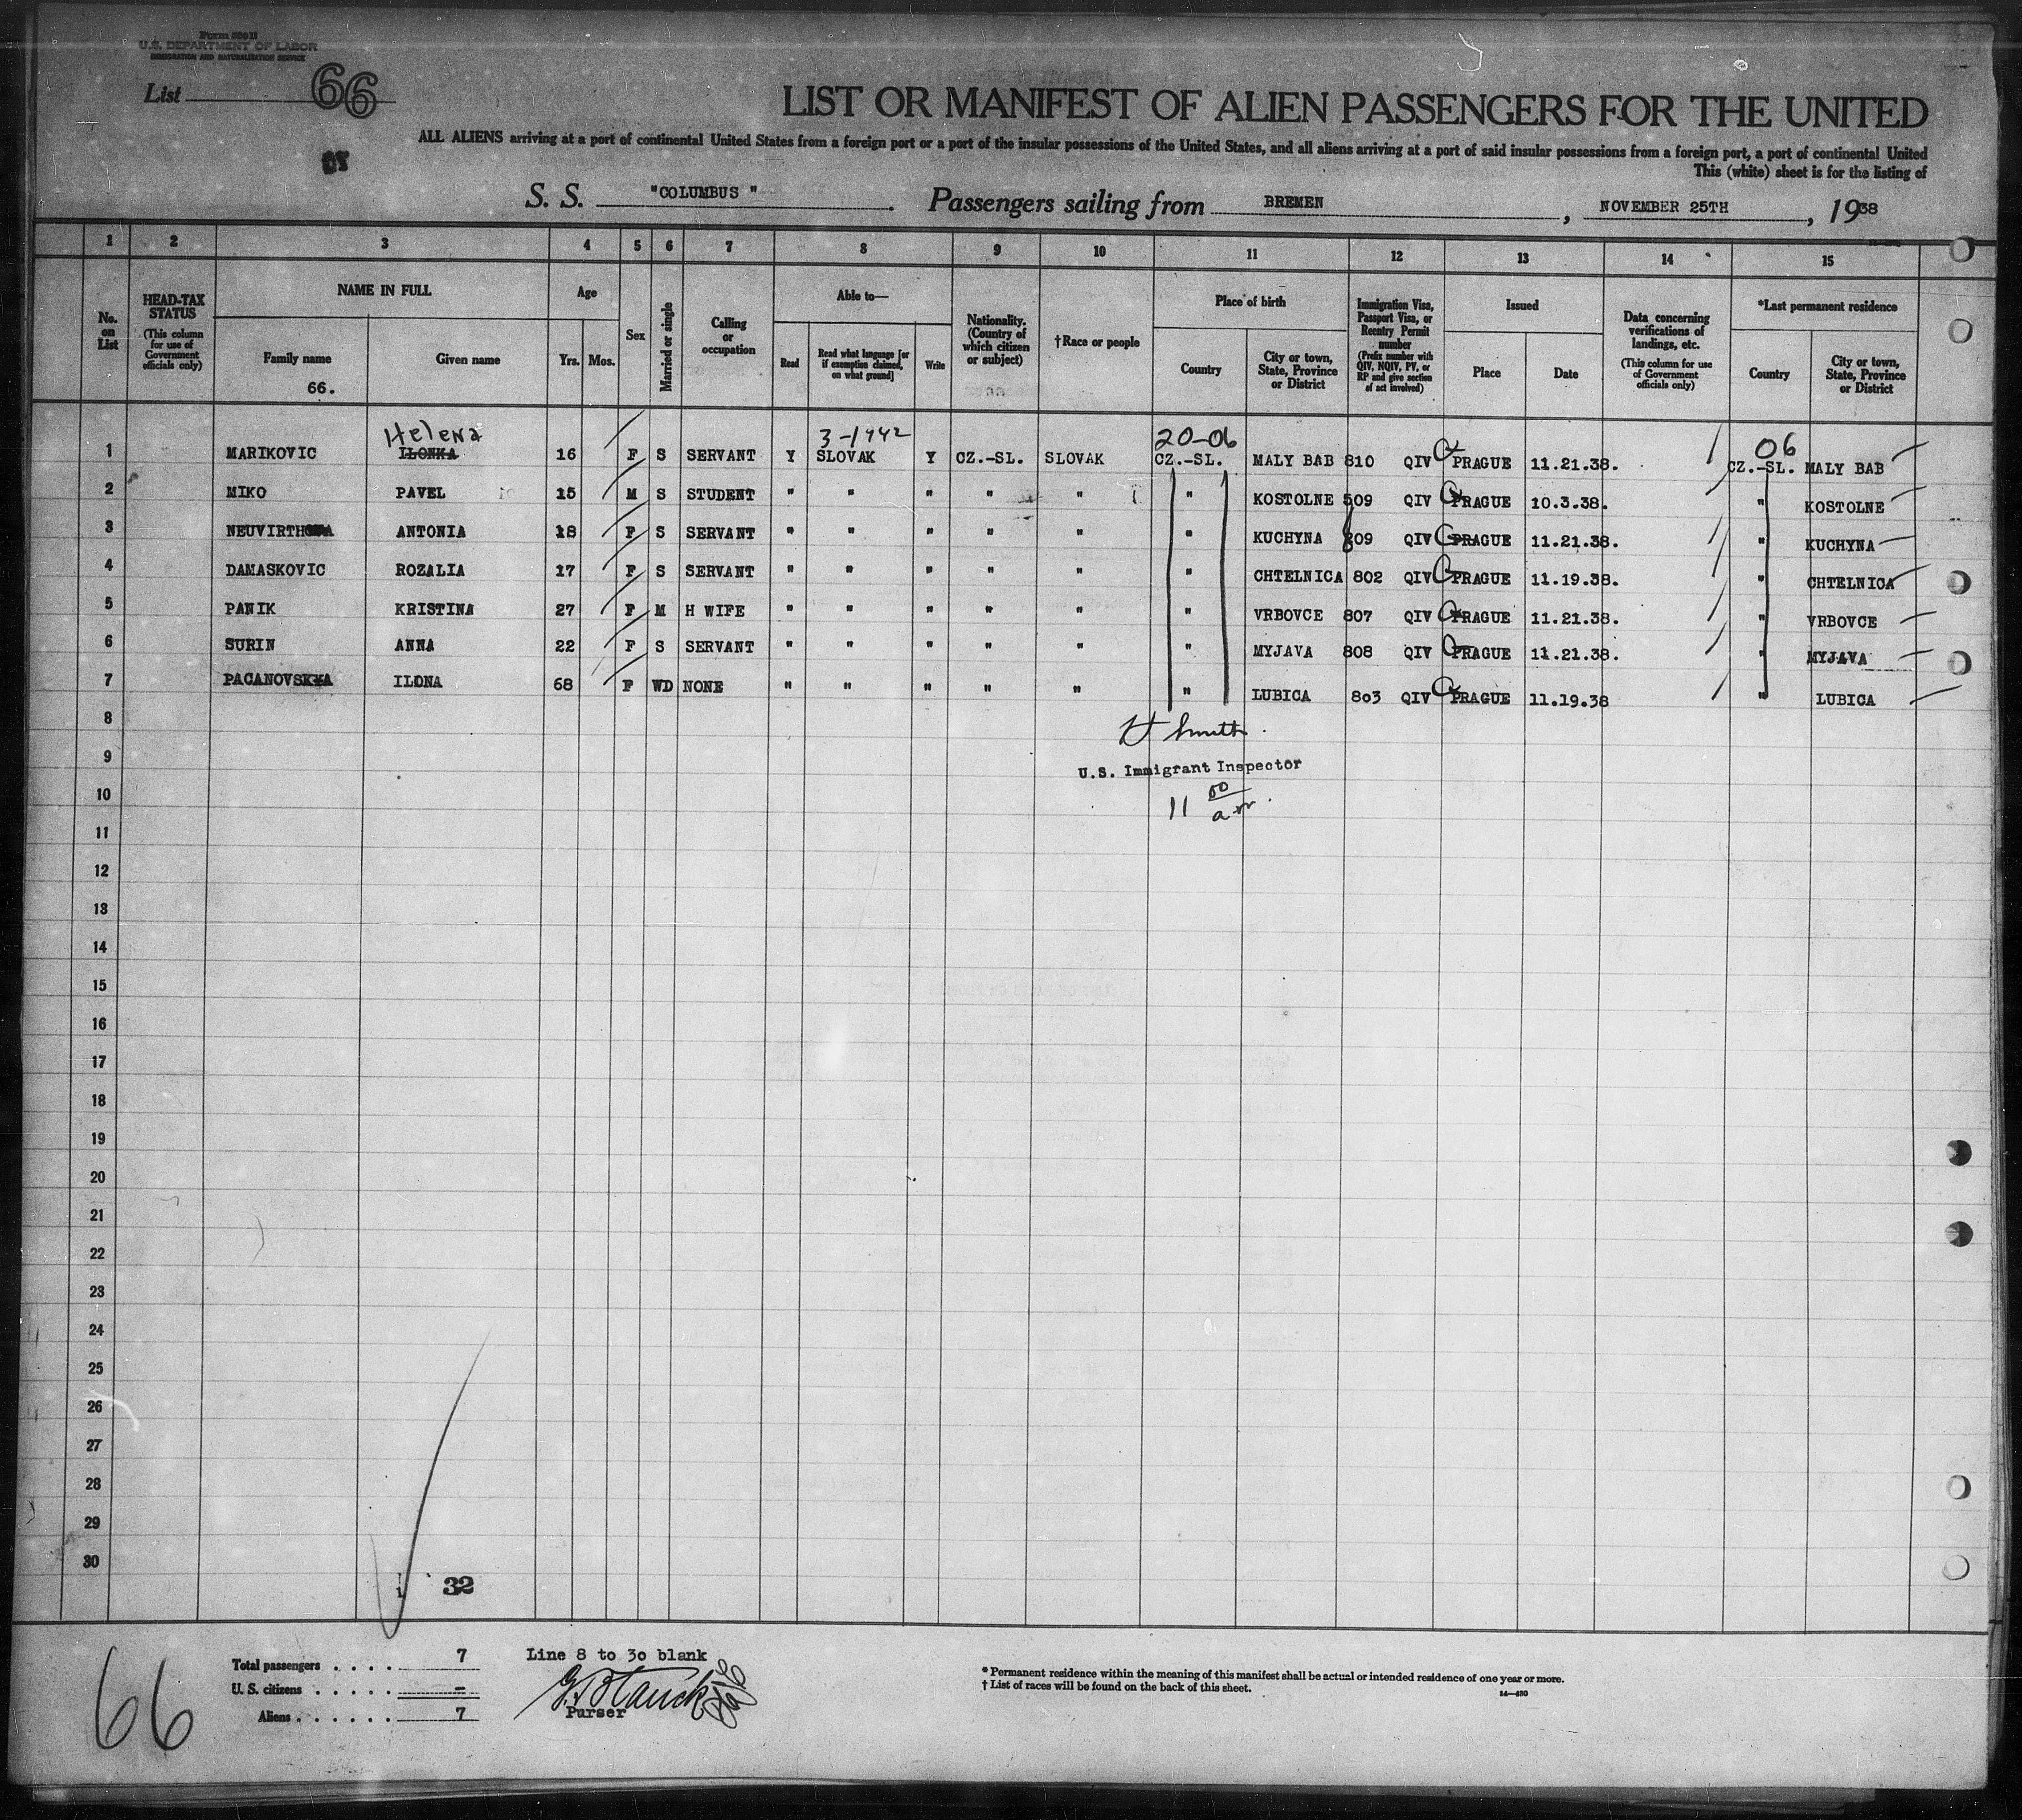 Form 500 B
U.S. DEPARTMENT OF LABOR
IMMIGRATION AND NATURALIZATION SERVICE
List 66
LIST OR MANIFEST OF ALIEN PASSENGERS FOR THE UNITED
ALL ALIENS arriving at a port of continental United States from a foreign port or a port of the insular possessions of the United States, and all aliens arriving at a port of said insular possessions from a foreign port, a port of continental United
This (white) sheet is for the listing of
S. S. "COLUMBUS" . Passengers sailing from BREMEN , NOVEMBER 25TH , 1938
1 2 3 4 5 6 7 8 9 10 11 12 13 14 15
No. on List
HEAD-TAX STATUS
(This column for use of Government officials only)
NAME IN FULL
Family name
66.
Given name
Age
Yrs. Mos.
Sex
Married or single
Calling or occupation
Able to—
Read
Read what language [or if exemption claimed, on what ground]
Write
Nationality. (Country of which citizen or subject)
†Race or people
Place of birth
Country
City or town, State, Province or District
Immigration Visa, Passport Visa, or Reentry Permit number
(Prefix number with QIV, NQIV, PV, or RP and give section of act involved)
Issued
Place
Date
Data concerning verifications of landings, etc.
(This column for use of Government officials only)
*Last permanent residence
Country
City or town, State, Province or District
Helena 3-1942 20-06 06
1 MARIKOVIC ILONKA 16 F S SERVANT Y SLOVAK Y CZ.-SL. SLOVAK CZ.-SL. MALY BAB 810 QIV PRAGUE 11.21.38. CZ.-SL. MALY BAB
2 MIKO PAVEL 15 M S STUDENT " " " " " " KOSTOLNE 509 QIV PRAGUE 10.3.38. " KOSTOLNE
3 NEUVIRTH ANTONIA 18 F S SERVANT " " " " " " KUCHYNA 809 QIV PRAGUE 11.21.38. " KUCHYNA
4 DAMASKOVIC ROZALIA 17 F S SERVANT " " " " " " CHTELNICA 802 QIV PRAGUE 11.19.38. " CHTELNICA
5 PANIK KRISTINA 27 F M H WIFE " " " " " " VRBOVCE 807 QIV PRAGUE 11.21.38. " VRBOVCE
6 SURIN ANNA 22 F S SERVANT " " " " " " MYJAVA 808 QIV PRAGUE 11.21.38. " MYJAVA
7 PACANOVSKA ILONA 68 F WD NONE " " " " " " LUBICA 803 QIV PRAGUE 11.19.38 " LUBICA
8
H Smith
9
U.S. Immigrant Inspector
10
11 00 am.
11
12
13
14
15
16
17
18
19
20
21
22
23
24
25
26
27
28
29
30
32
66
Total passengers . . . . 7
U. S. citizens . . . . . –
Aliens . . . . . . 7
Line 8 to 30 blank
Purser
* Permanent residence within the meaning of this manifest shall be actual or intended residence of one year or more.
† List of races will be found on the back of this sheet.
14—430